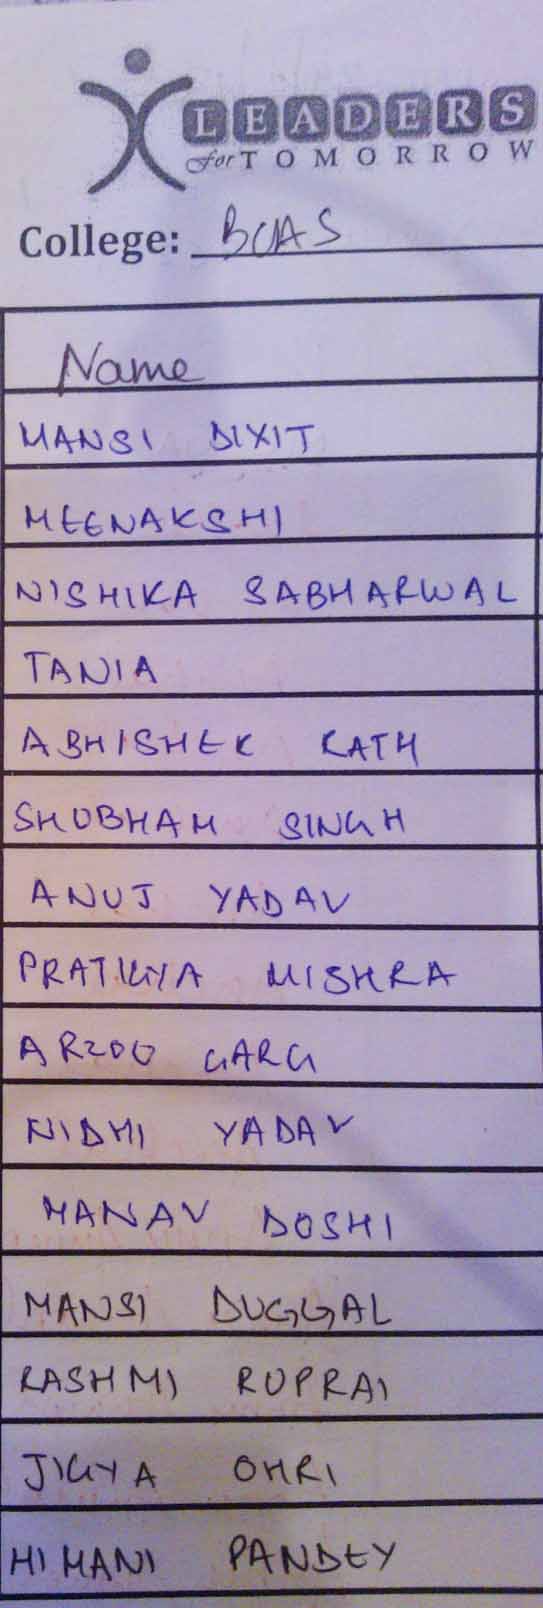 LEADERS
for TOMORROW
College: BCAS
Name
MANSI DIXIT
MEENAKSHI
NISHIKA SABHARWAL
TANIA
ABHISHEK RATH
SHUBHAM SINGH
ANUJ YADAV
PRATIGYA MISHRA
ARZOO GARG
NIDHI YADAV
MANAV DOSHI
MANSI DUGGAL
RASHMI RUPRAI
JIGYA OHRI
HIMANI PANDEY